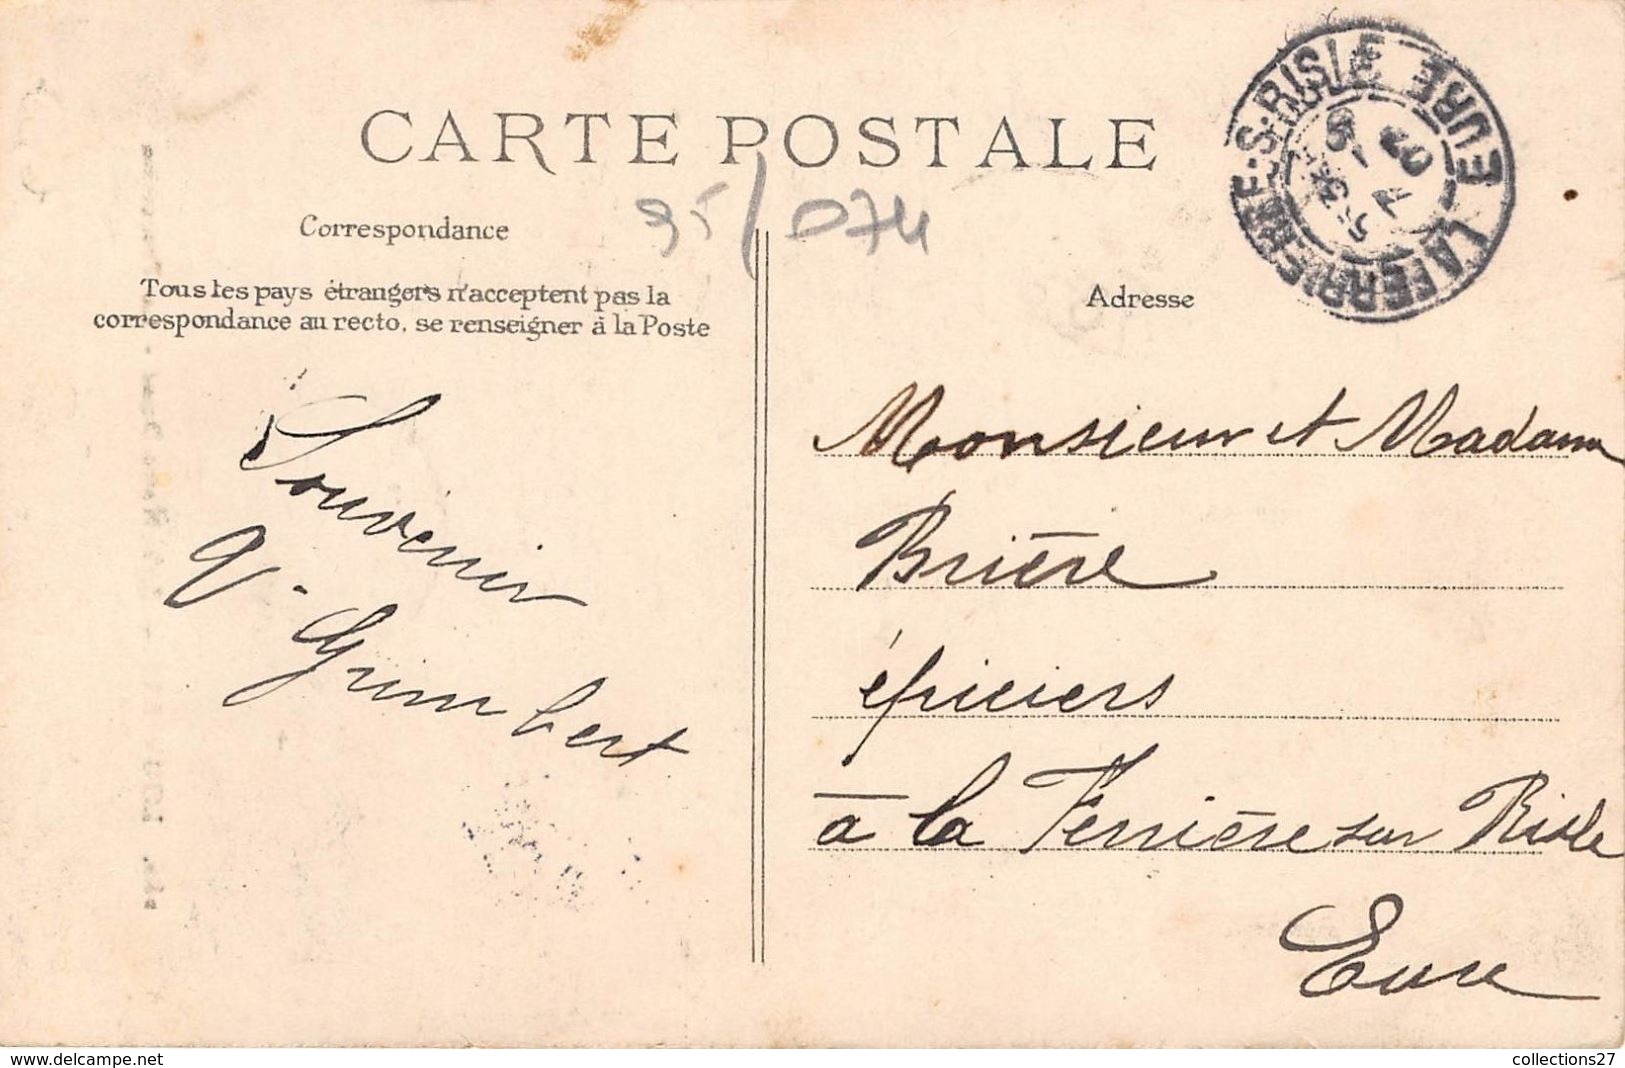 CARTE POSTALE
95/074
Correspondance
Tous les pays étrangers n'acceptent pas la
correspondance au recto, se renseigner à la Poste
Souvenir
Grimbert
Adresse
LA FERRIERE-S-RISLE EURE
Monsieur et Madame
Brière
épiciers
à la Ferrière sur Risle
Eure
www.delcampe.net
collections27